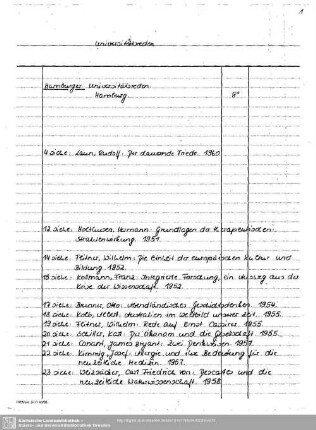 1
Universitätsreden
Hamburger Universitätsreden
Hamburg. 8°
4 siehe: Laun, Rudolf: Der dauernde Friede. 1950
12 siehe: Holthusen, Hermann: Grundlagen der therapeutischen
Strahlenwirkung. 1951.
14 siehe: Flitner, Wilhelm: Die Einheit der europäischen Kultur und
Bildung. 1952.
15 siehe: Kollmann, Franz: Integrierte Forschung, ein Ausweg aus der
Krise der Wissenschaft. 1952
17 siehe: Brunner, Otto: Abendländisches Geschichtsdenken. 1954.
18 siehe: Kolb, Albert: Australien im Weltbild unserer Zeit. 1955.
19 siehe: Flitner, Wilhelm: Rede auf Ernst Cassirer. 1955
20 siehe: Schiller, Karl: Der Ökonom und die Gesellschaft. 1955.
21 siehe: Conant, James Bryant: Zwei Denkweisen. 1957.
22 siehe: Kimmig, Josef: Allergie und ihre Bedeutung für die
neuzeitliche Medizin. 1957.
23 siehe: Weizsäcker, Carl Friedrich von: Descartes und die
neuzeitliche Naturwissenschaft. 1958.